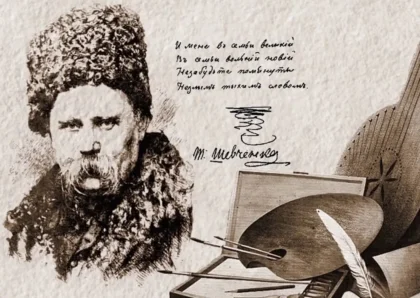 И мене въ семьи великій
Въ семьи вольній новій
Незабудьте помьянуть
Незлымъ тыхимъ словомъ
Т. Шевченко